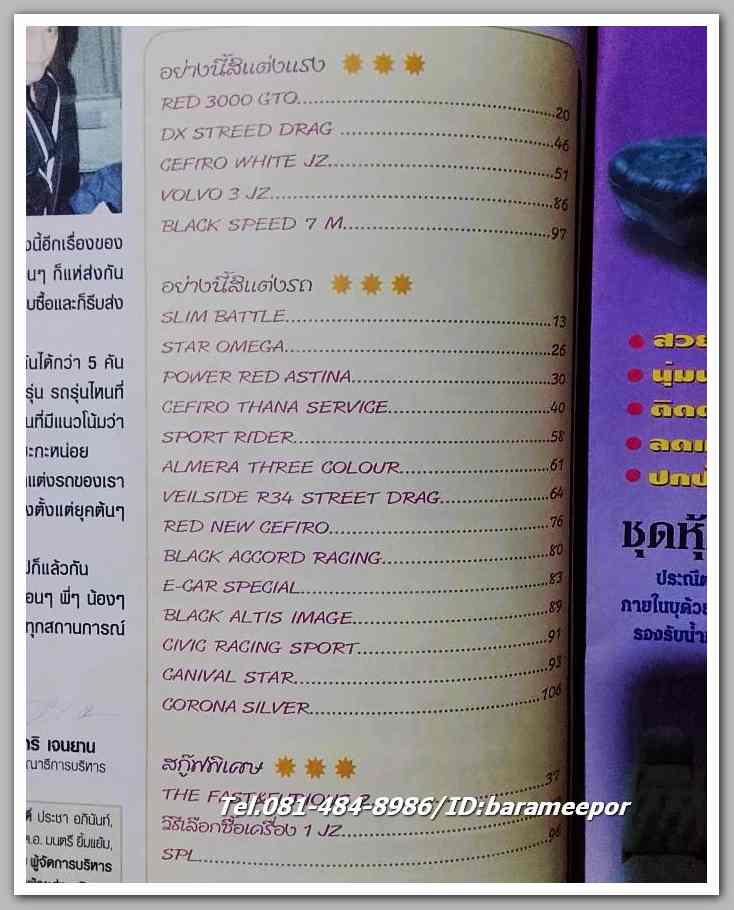 อย่างนี้สิแต่งแรง
RED 3000 GTO....................20
DX STREED DRAG ....................46
CEFIRO WHITE JZ....................51
VOLVO 3 JZ....................86
BLACK SPEED 7 M....................97
อย่างนี้สิแต่งรถ
SLIM BATTLE....................13
STAR OMEGA....................26
POWER RED ASTINA....................30
CEFIRO THANA SERVICE....................40
SPORT RIDER....................58
ALMERA THREE COLOUR....................61
VEILSIDE R34 STREET DRAG....................64
RED NEW CEFIRO....................76
BLACK ACCORD RACING....................80
E-CAR SPECIAL....................83
BLACK ALTIS IMAGE....................89
CIVIC RACING SPORT....................91
CANIVAL STAR....................93
CORONA SILVER....................106
สกู๊ฟพิเศษ
THE FAST&FURIOUS 2....................37
วิธีเลือกซื้อเครื่อง 1 JZ....................
SPL....................96
Tel.081-484-8986/ID:barameepor
นี้อีกเรื่องของ
นๆ ก็แห่ส่งกัน
บซื้อและก็รีบส่ง
ันได้กว่า 5 คัน
รุ่น รถรุ่นไหนที่
นที่มีแนวโน้มว่า
ะกะหน่อย
แต่งรถของเรา
งตั้งแต่ยุคต้นๆ
ก็แล้วกัน
อนๆ พี่ๆ น้องๆ
ทุกสถานการณ์
เจนยาน
ณาธิการบริหาร
ประชา อภินันท์,
.อ. มนตรี ยิ้มแย้ม,
ผู้จัดการบริหาร
สวย
นุ่มน
ติดต
ลดแ
ปกป
ชุดหุ้
ประณีต
ภายในบุด้วย
รองรับน้ำ